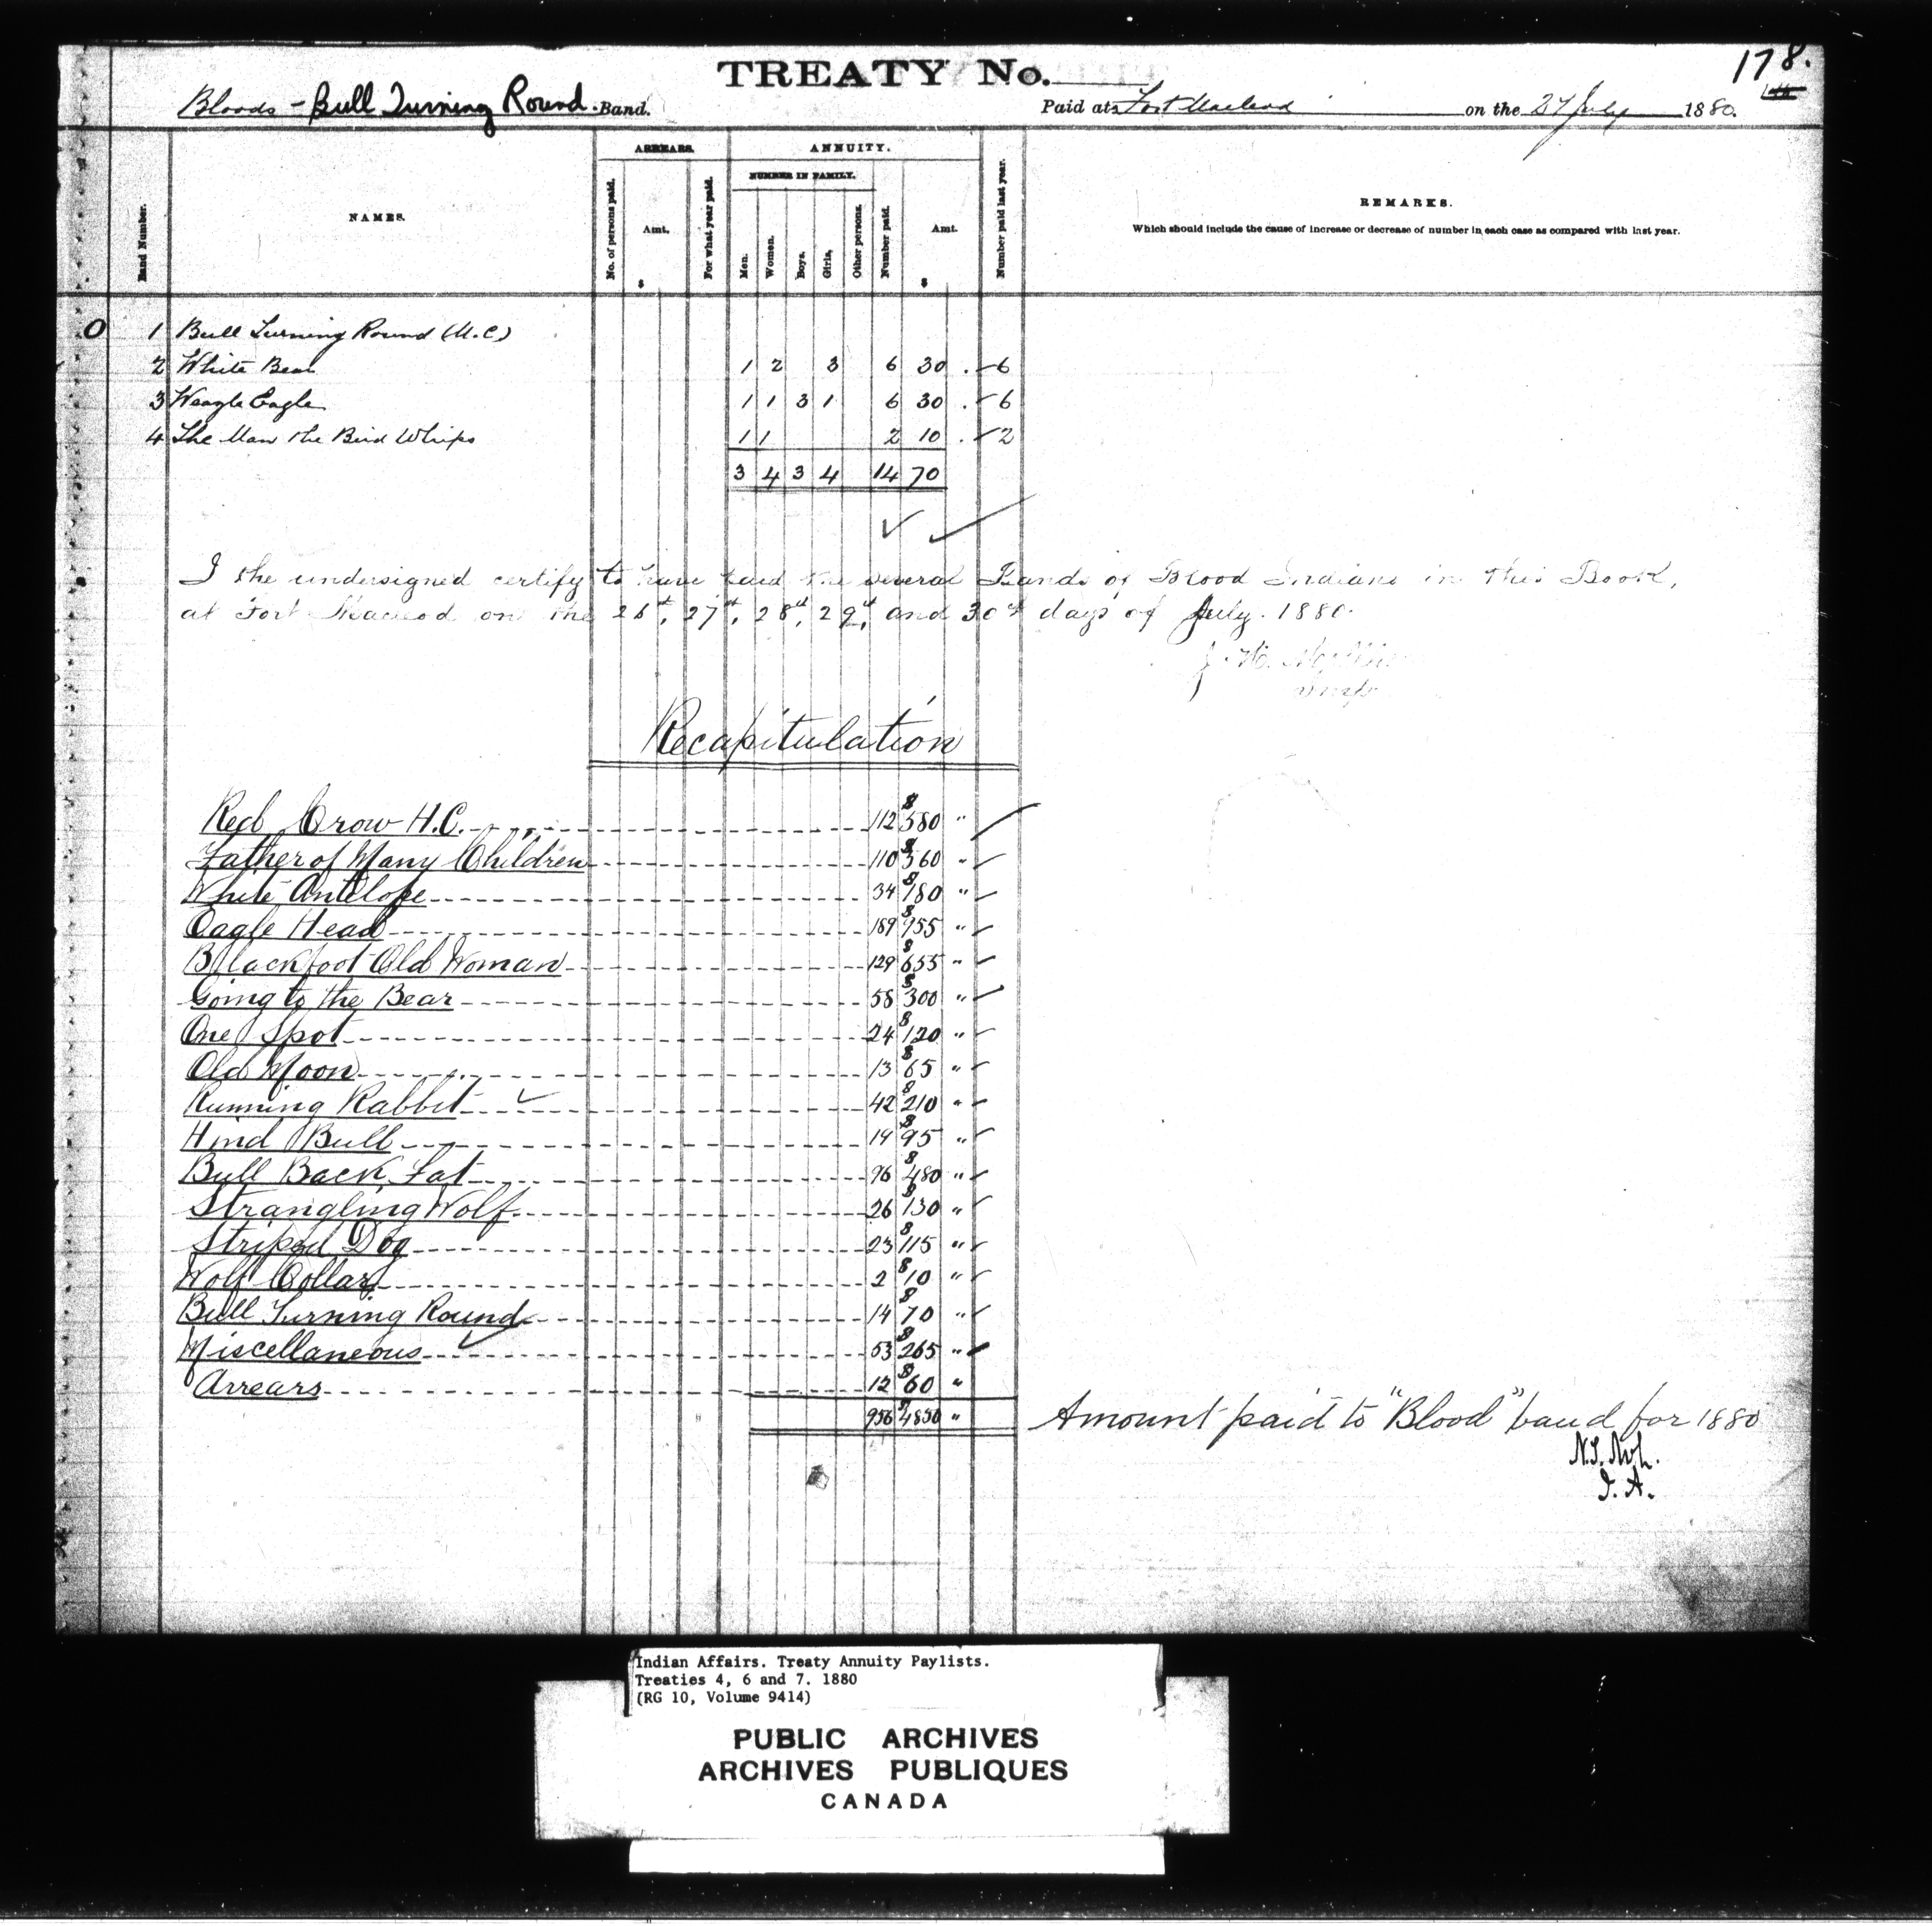 178.
TREATY No.
Bloods - Bull Turning Round Band. Paid at Fort Macleod on the 27 July 1880.
ARREARS. ANNUITY.
NUMBER IN FAMILY.
Band Number. NAMES. No. of persons paid. Amt. $ For what year paid. Men. Women. Boys. Girls, Other persons. Number paid. Amt. $ Number paid last year. REMARKS.
Which should include the cause of increase or decrease of number in each case as compared with last year.
0 1 Bull Turning Round (M.C)
2 White Bear 1 2 3 6 30 . 6
3 Weagle Eagle 1 1 3 1 6 30 . 6
4 The Man the Bird Whips 1 1 2 10 . 2
3 4 3 4 14 70
I the undersigned certify to have paid the several Bands of Blood Indians in this Book,
at Fort Macleod on the 26th, 27th, 28th, 29th, and 30th days of July. 1880.
Recapitulation
Red Crow H.C. 112 $580 "
Father of Many Children 110 $560 "
White Antelope 34 $180 "
Eagle Head 189 $955 "
Blackfoot Old Woman 129 $655 "
Going to the Bear 58 $300 "
One Spot 24 $120 "
Old Moon 13 $65 "
Running Rabbit 42 $210 "
Hind Bull 19 $95 "
Bull Back Fat 96 $480 "
Strangling Wolf 26 $130 "
Striped Dog 23 $115 "
Wolf Collar 2 $10 "
Bull Turning Round 14 $70 "
Miscellaneous 53 $265 "
Arrears 12 $60 "
956 $4850 " Amount paid to "Blood" band for 1880
I.A.
Indian Affairs. Treaty Annuity Paylists.
Treaties 4, 6 and 7. 1880
(RG 10, Volume 9414)
PUBLIC ARCHIVES
ARCHIVES PUBLIQUES
CANADA